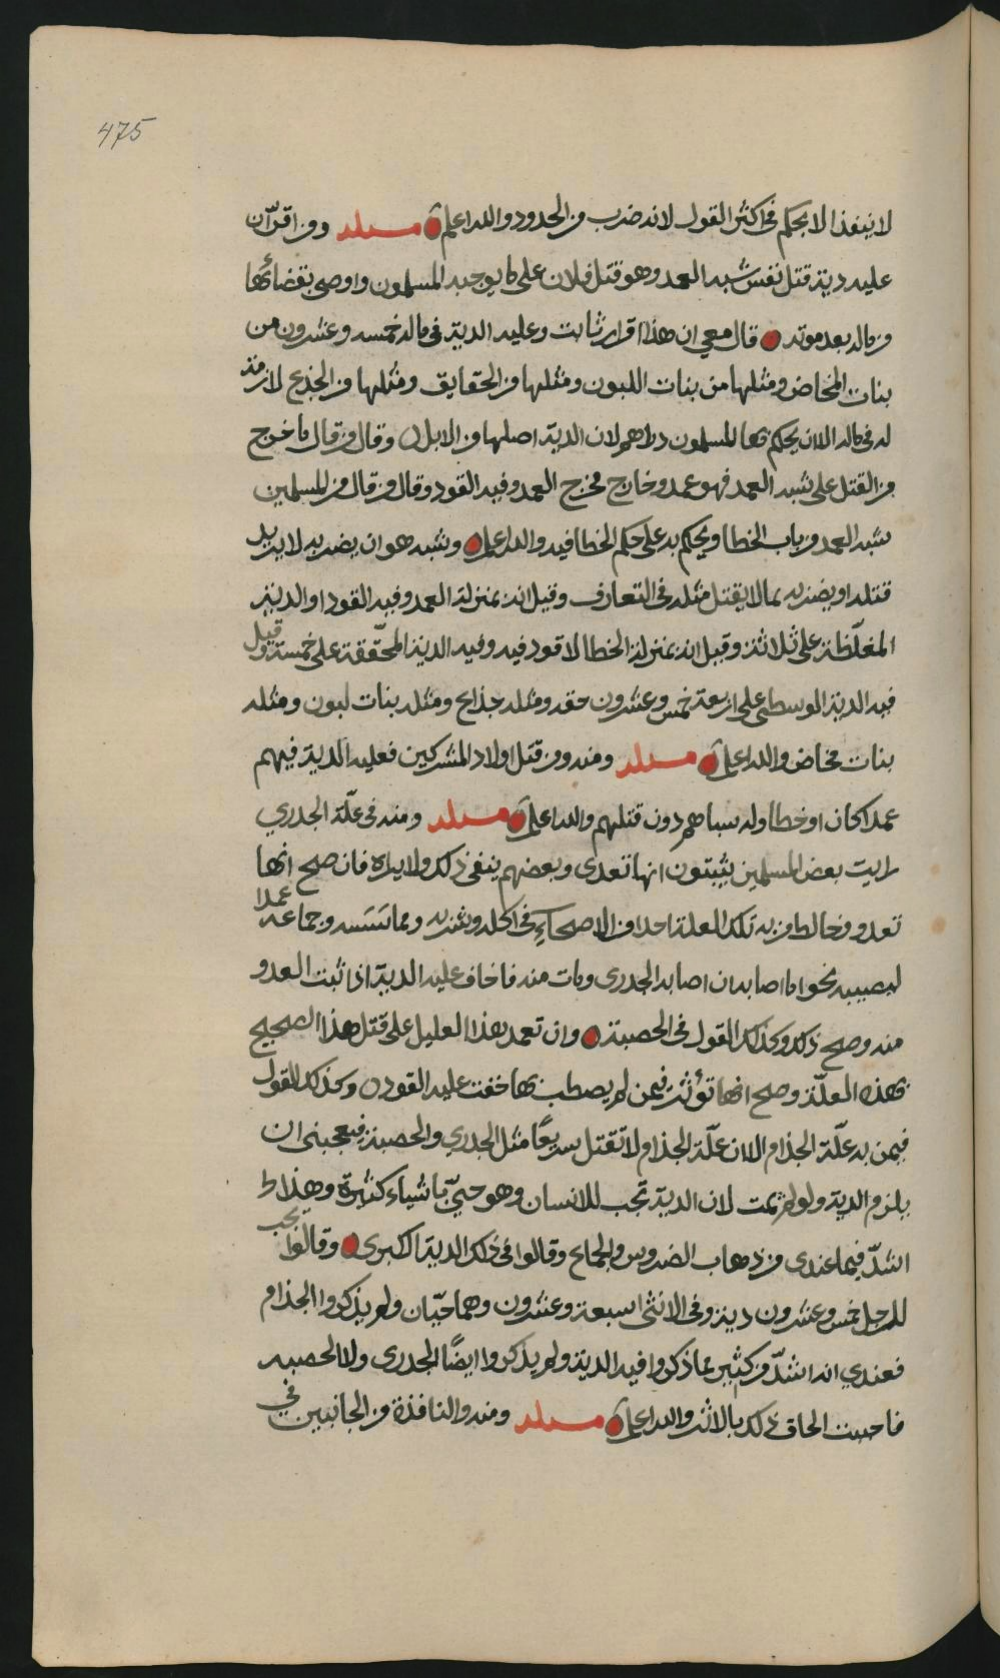 475
لا ينفذ الا بحكم في اكثر القول لانه ضرب من الحدود والله اعلم مسئلة ومن اقر ان
عليه دية قتل نفس شبه العمد وهو قتل فلان على ما يوجبه المسلمون واوصى بقضائها
من ماله بعد موته قال معي ان هذا اقرار ثابت وعليه الدية في ماله خمسه وعشرون من
بنات المخاض ومثلها من بنات اللبون ومثلها من الحقايق ومثلها من الجذع لازمة
له في ماله الا ان يحكم بها المسلمون دراهم لان الدية اصلها من الابل وقال من قال ما خرج
من القتل على شبه العمد فهو عمد وخارج مخرج العمد وفيه القود وقال من قال من المسلمين
شبه العمد من باب الخطا ويحكم به على حكم الخطا فيه والله اعلم وشبه هو ان يضربه لا يريد
قتله او يضربه بما لا يقتل مثله في التعارف وقيل انه بمنزلة العمد وفيه القود او الدية
المغلّظة على ثلاثة وقيل انه بمنزلة الخطا لا قود فيه وفيه الدية المخّففة على خمسة وقيل
فيه الدية الوسطى على اربعة خمس وعشرون حقه ومثله جذاع ومثله بنات لبون ومثله
بنات مخاض والله اعلم مسئلة ومنه ومن قتل اولاد المشركين فعليه الدية فيهم
عمدا كان او خطا وله سباهم دون قتلهم والله اعلم مسئلة ومنه في علّة الجدري
رايت بعض المسلمين يثبتون انها تعدى وبعضهم ينفي ذلك ولا يراه فان صح انها
تعدو وخالط من به تلك العلة احدا من الاصحاءِ في اكله وشربه ومماسَسَه وجماعه عمدا
ليصيبه نحو ما اصابه ان اصابه الجدرى ومات منه فاخاف عليه الدية اذا ثبت العدو
منه وصح ذلك وكذلك القول في الحصبة وان تعمد هذا العليل على قتل هذا الصحيح
بهذه العلّة وصح انها تؤثر فيمن لم يصطب بها خفت عليه القود وكذلك القول
فيمن به علّة الجذام الا ان علّة الجذام لا تقتل سريعًا مثل الجدري والحصبة فيعجبني ان
يلزم الدية ولو لم يمت لان الدية تجب للانسان وهو حيّ باشياء كثيرة وهذا
اشدّ فيما عندى من ذهاب الضروس والجماع وقالوا في ذلك الدية الكبرى وقالوا يجب
للرجل خمس وعشرون دية وفي الانثى سبعة وعشرون وهما حيّان ولم يذكروا الجذام
فعندي انه اشدّ من كثير مما ذكروا فيه الدية ولم يذكروا ايضًا الجدرى ولا الحصبه
فاحببت الحاق ذلك بالاثر والله اعلم مسئلة ومنه والنافذة من الجانبين في